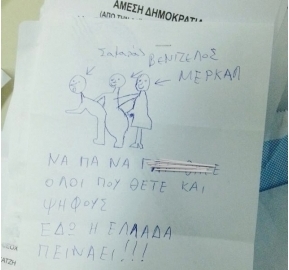 ΑΜΕΣΗ ΔΗΜΟΚΡΑΤΙΑ
(ΑΠΟ ΤΗΝ
ΒΕΝΙΖΕΛΟΣ
ΜΕΡΚΑΛ
ΝΑ ΠΑ ΝΑ
ΟΛΟΙ ΠΟΥ ΘΕΤΕ ΚΑΙ
ΨΗΦΟΥΣ
ΕΔΩ Η ΕΛΛΑΔΑ
ΠΕΙΝΑΕΙ!!!